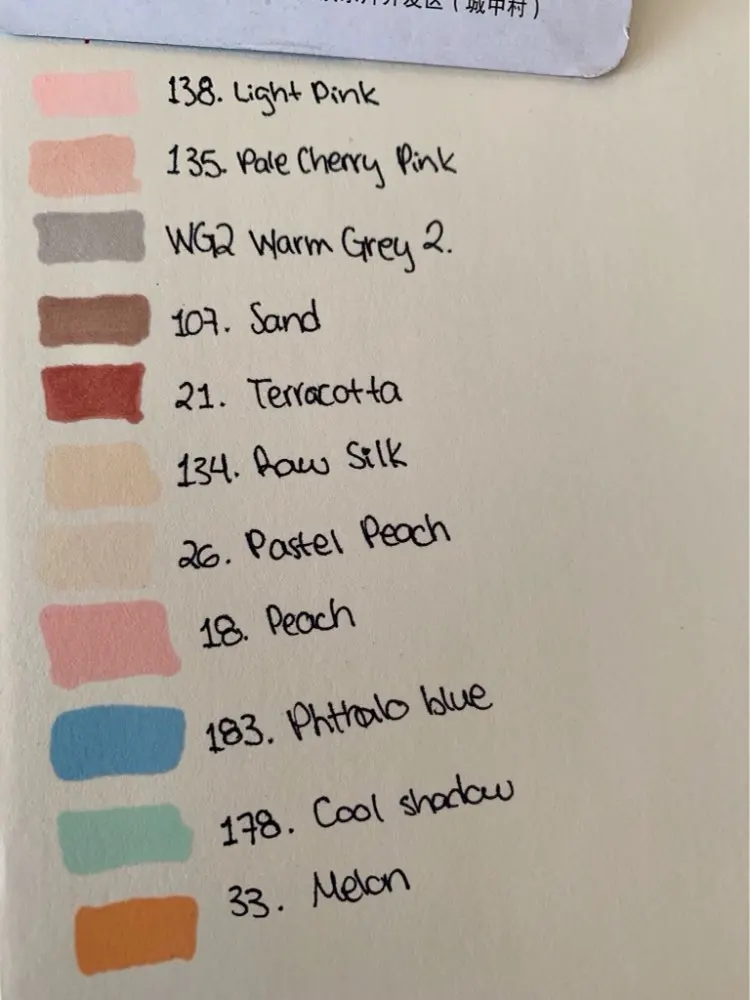 开发区(城中村)
138. Light Pink
135. Pale Cherry Pink
WG2 Warm Grey 2.
107. Sand
21. Terracotta
134. Raw Silk
26. Pastel Peach
18. Peach
183. Phthalo blue
178. Cool shadow
33. Melon